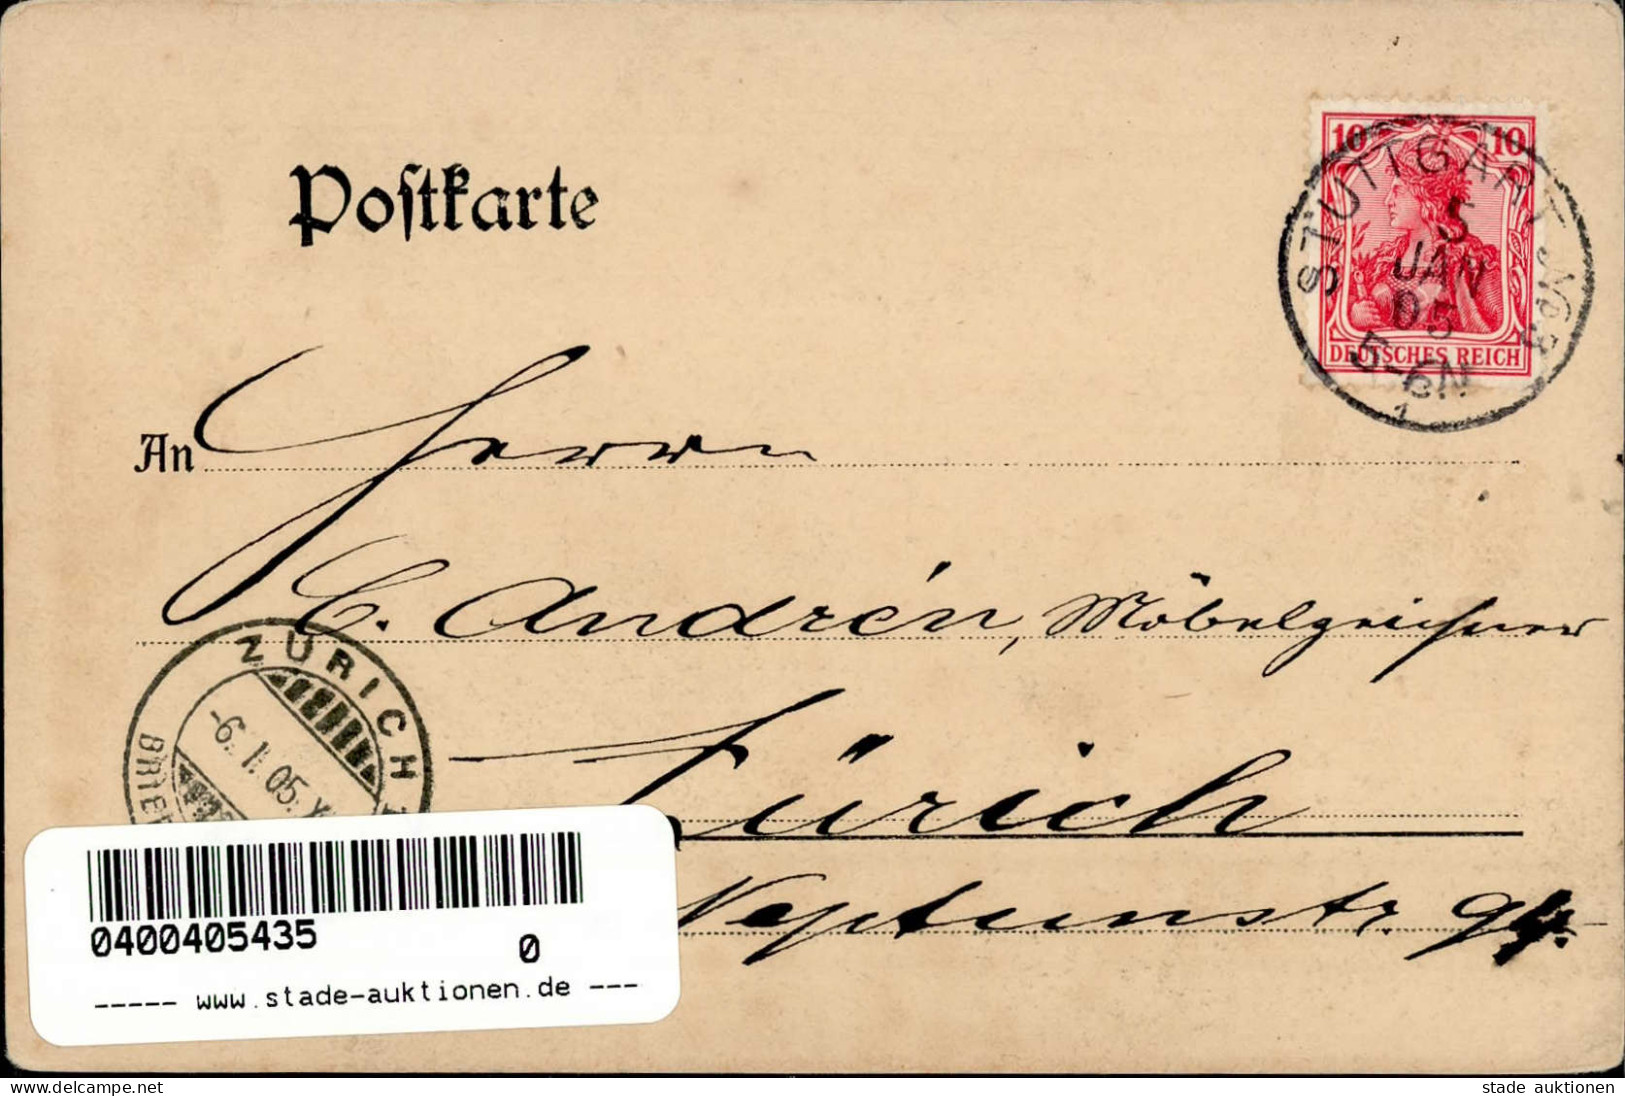 Postkarte
10 10
DEUTSCHES REICH
STUTTGART No 3
5
JAN
05
5-6N
1
An Herrn
C. Andrén, Möbelzeichner
Zürich
Neptunstr.
ZÜRICH
-6. I. 05.
0400405435
0
----- www.stade-auktionen.de ---
www.delcampe.net
stade auktionen